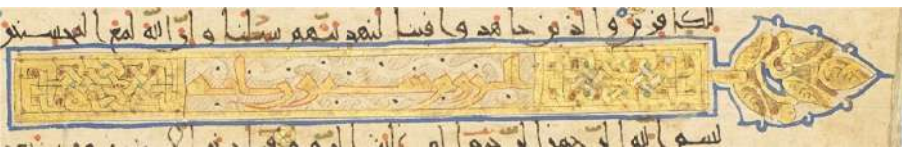 للكافرين والذين جاهدوا فينا لنهدينهم سبلنا وان الله لمع المحسنين
الروم ستون
بسم الله الرحمن الرحيم الم غلبت الروم